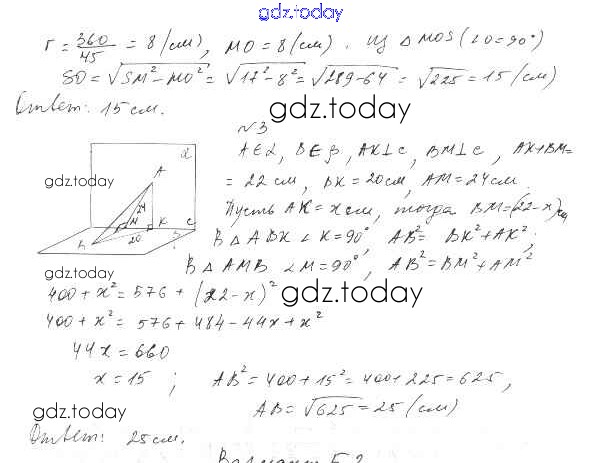 gdz.today
r = 360/45 = 8 (см), MO = 8 (см). Из △ MOS (∠O = 90°)
SO = √SM² - MO² = √17² - 8² = √289 - 64 = √225 = 15 (см)
Ответ: 15 см.
gdz.today
№3
A ∈ α, B ∈ β, AK ⊥ c, BM ⊥ c, AK + BM =
= 22 см, BK = 20 см, AM = 24 см.
Пусть AK = x см, тогда BM = (22 - x) см
В △ ABK ∠K = 90°, AB² = BK² + AK²,
В △ AMB ∠M = 90°, AB² = BM² + AM²
gdz.today
α
A
24
M
K
C
20
gdz.today
400 + x² = 576 + (22 - x)²
gdz.today
400 + x² = 576 + 484 - 44x + x²
44x = 660
x = 15 ; AB² = 400 + 15² = 400 + 225 = 625,
AB = √625 = 25 (см)
gdz.today
Ответ: 25 см.